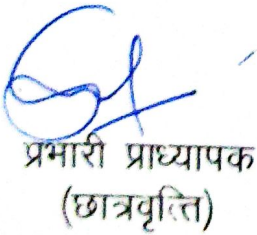 प्रभारी प्राध्यापक
(छात्रवृत्ति)